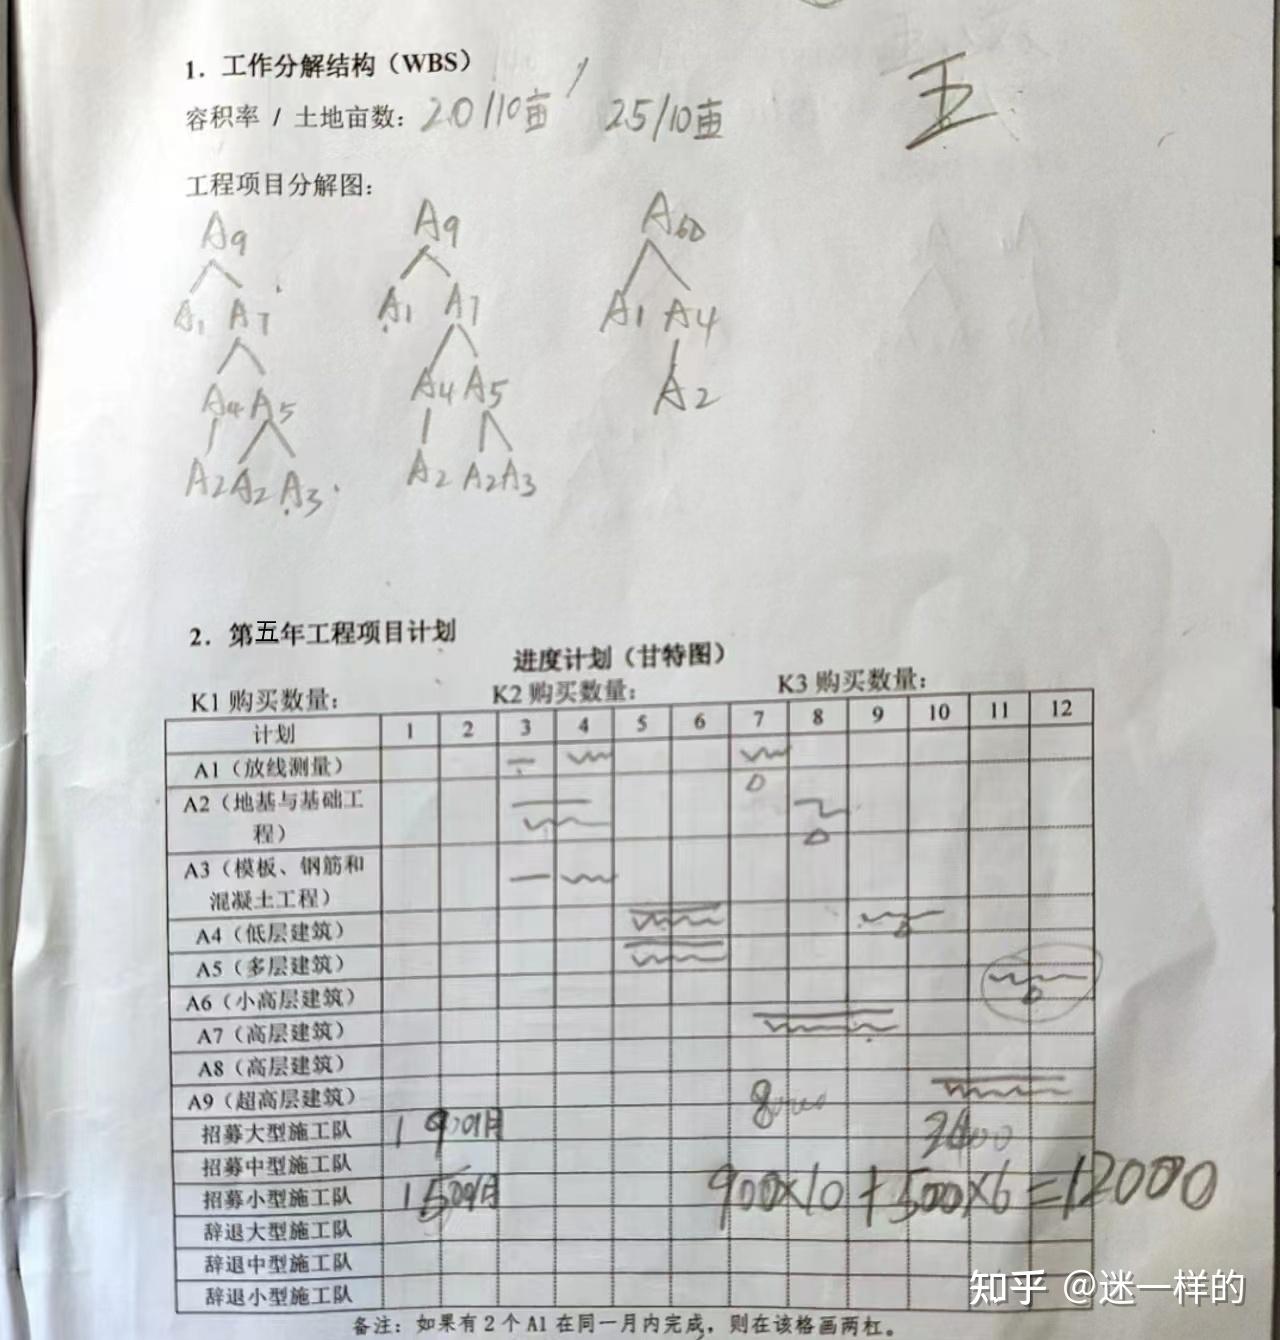 1. 工作分解结构（WBS）
五
容积率 / 土地亩数：2.0/10亩 2.5/10亩
工程项目分解图：
A9 A9 A60
A1 A7 A1 A7 A1 A4
A4 A5 A4 A5 A2
A2 A2 A3 A2 A2 A3
2. 第五年工程项目计划
进度计划（甘特图）
K1 购买数量： K2 购买数量： K3 购买数量：
计划 1 2 3 4 5 6 7 8 9 10 11 12
A1（放线测量）
A2（地基与基础工
程）
A3（模板、钢筋和
混凝土工程）
A4（低层建筑）
A5（多层建筑）
A6（小高层建筑）
A7（高层建筑）
A8（高层建筑）
A9（超高层建筑）
招募大型施工队 1
招募中型施工队
招募小型施工队 1 900×10+500×6=12000
辞退大型施工队
辞退中型施工队
辞退小型施工队
备注：如果有2个A1在同一月内完成，则在该格画两杠。
知乎 @迷一样的